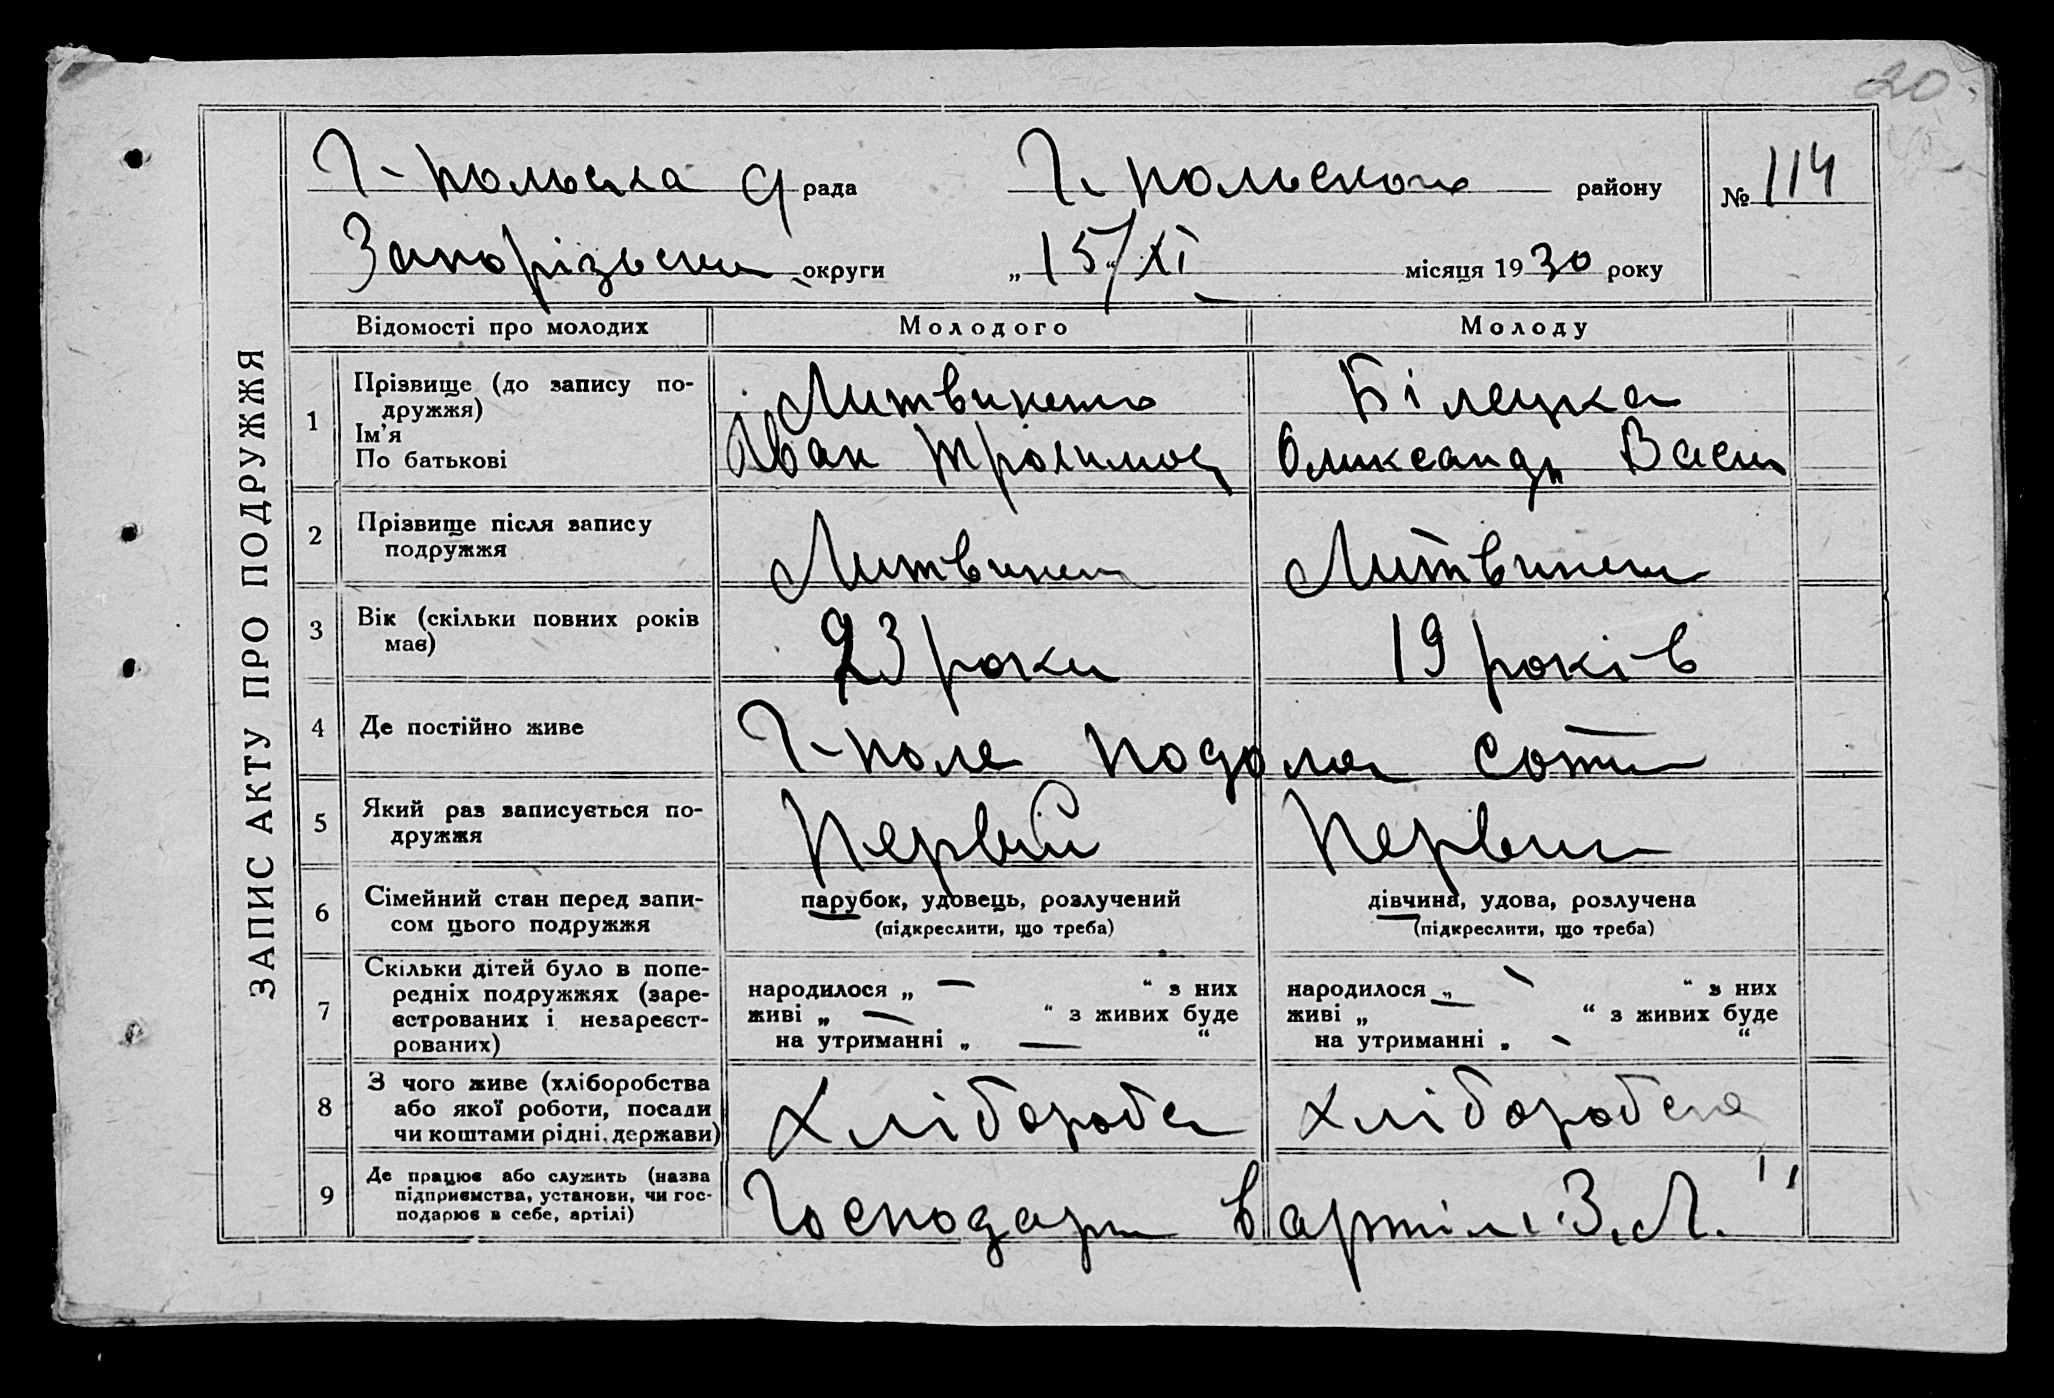 20
Г-польська с/ рада Г. польского району № 114
Запорізьськи округи „ 15/XI “ місяця 1930 року
ЗАПИС АКТУ ПРО ПОДРУЖЖЯ
Відомості про молодих Молодого Молоду
1 Прізвище (до запису по-
дружжя)
Ім'я
По батькові
Литвиненко
Іван Трохимов
Білецка
Олександ. Васи
2 Прізвище після запису
подружжя
Литвинен Литвинен
3 Вік (скільки повних років
має)
23 роки 19 років
4 Де постійно живе Г-поле подолян сотн
5 Який раз записується по-
дружжя
Первий Первий
6 Сімейний стан перед запи-
сом цього подружжя
парубок, удовець, розлучений
(підкреслити, що треба)
дівчина, удова, розлучена
(підкреслити, що треба)
7 Скільки дітей було в попе-
редніх подружжях (заре-
єстрованих і незареєст-
рованих)
народилося „ — “ з них
живі „ — “ з живих буде
на утриманні „ — “
народилося „ — “ з них
живі „ — “ з живих буде
на утриманні „ - “
8 З чого живе (хліборобства
або якої роботи, посади
чи коштами рідні, держави)
Хлібороб Хлібороб
9 Де працює або служить (назва
підприємства, установи, чи гос-
подарює в себе, артілі)
Господар в артілі „З. Л. “